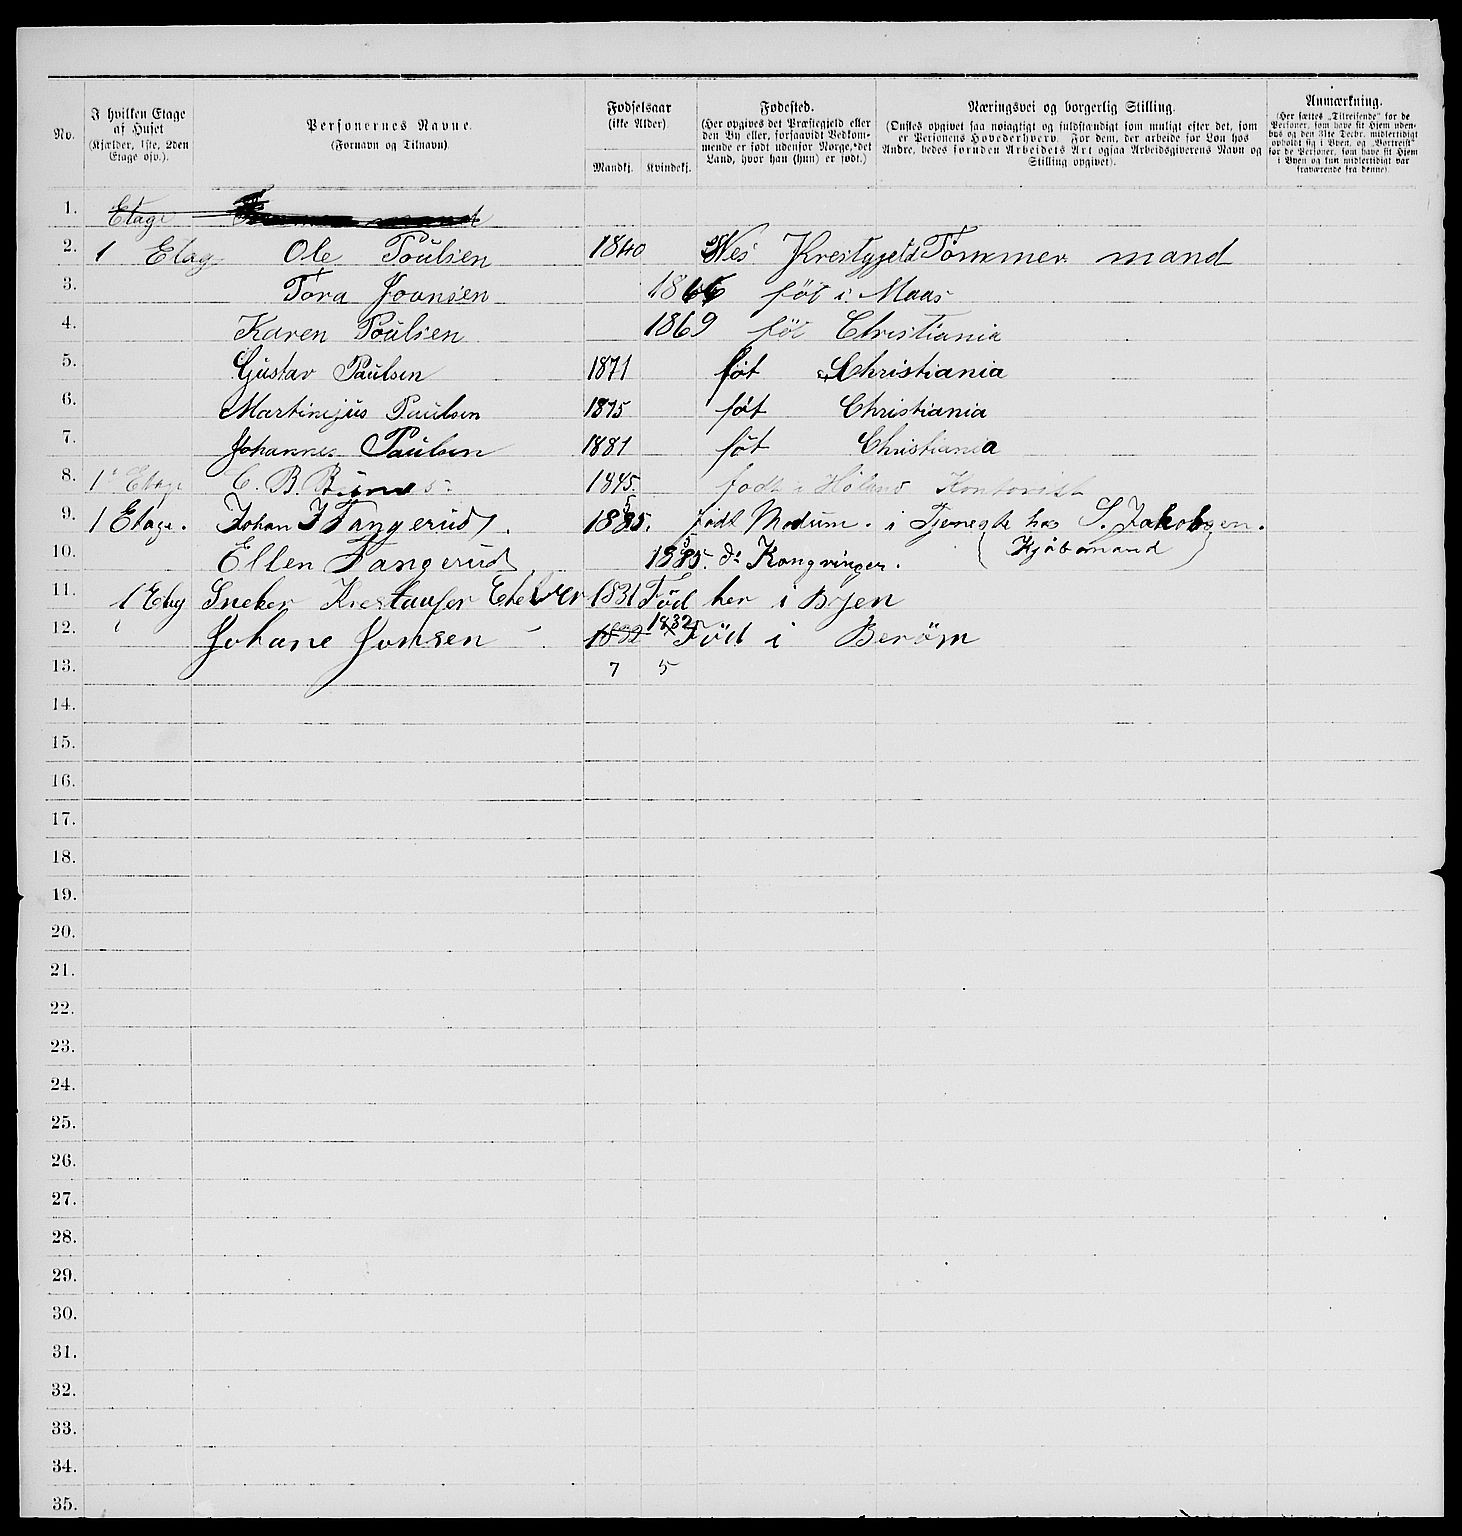 No.
I hvilken Etage af Huset (Kjælder, 1ste, 2den Etage osv.).
Personernes Navne. (Fornavn og Tilnavn).
Fødselsaar (ikke Alder)
Mandkj. Kvindekj.
Fødested. (Her opgives det Præstegjeld eller den By eller, forsaavidt Vedkommende er født udenfor Norge, det Land, hvor han (hun) er født.)
Næringsvei og borgerlig Stilling. (Ønskes opgivet saa nøiagtigt og fuldstændigt som muligt efter det, som er Personens Hovederhverv. For dem, der arbeide for Løn hos Andre, bedes foruden Arbeidets Art ogsaa Arbeidsgiverens Navn og Stilling opgivet).
Anmærkning. (Her sættes „Tilreisende“ for de Personer, som have sit Hjem udenbys og den 31te Decbr. midlertidigt opholdt sig i Byen, og „Bortreist“ for de Personer, som have sit Hjem i Byen og kun midlertidigt var fraværende fra denne).
1. Etage mand
2. 1 Etag Ole Poulsen 1840 Nes Prestgjeld Tømmer mand
3. Tora Joansen 1866 føt i Maas
4. Karen Poulsen 1869 føt Christiania
5. Gustav Paulsen 1871 føt Christiania
6. Martinijus Paulsen 1875 føt Christiania
7. Johannes Paulsen 1881 føt Christiania
8. 1 Etage C. B. 1845 født i Høland Kontorist
9. 1 Etage. Johan J Tangerud. 1885. 5 født Modum. i Tjeneste hos S. Jakobsen.
10. Ellen Tangerud 1885. 5 do Kongvinger. (Kjøbmand)
11. 1 Etag Sneker Krestaufer 1831 Fød her i Byen
12. Johane Jonsen 1832 1832 Fød i Berøm
13. 7 5
14.
15.
16.
17.
18.
19.
20.
21.
22.
23.
24.
25.
26.
27.
28.
29.
30.
31.
32.
33.
34.
35.